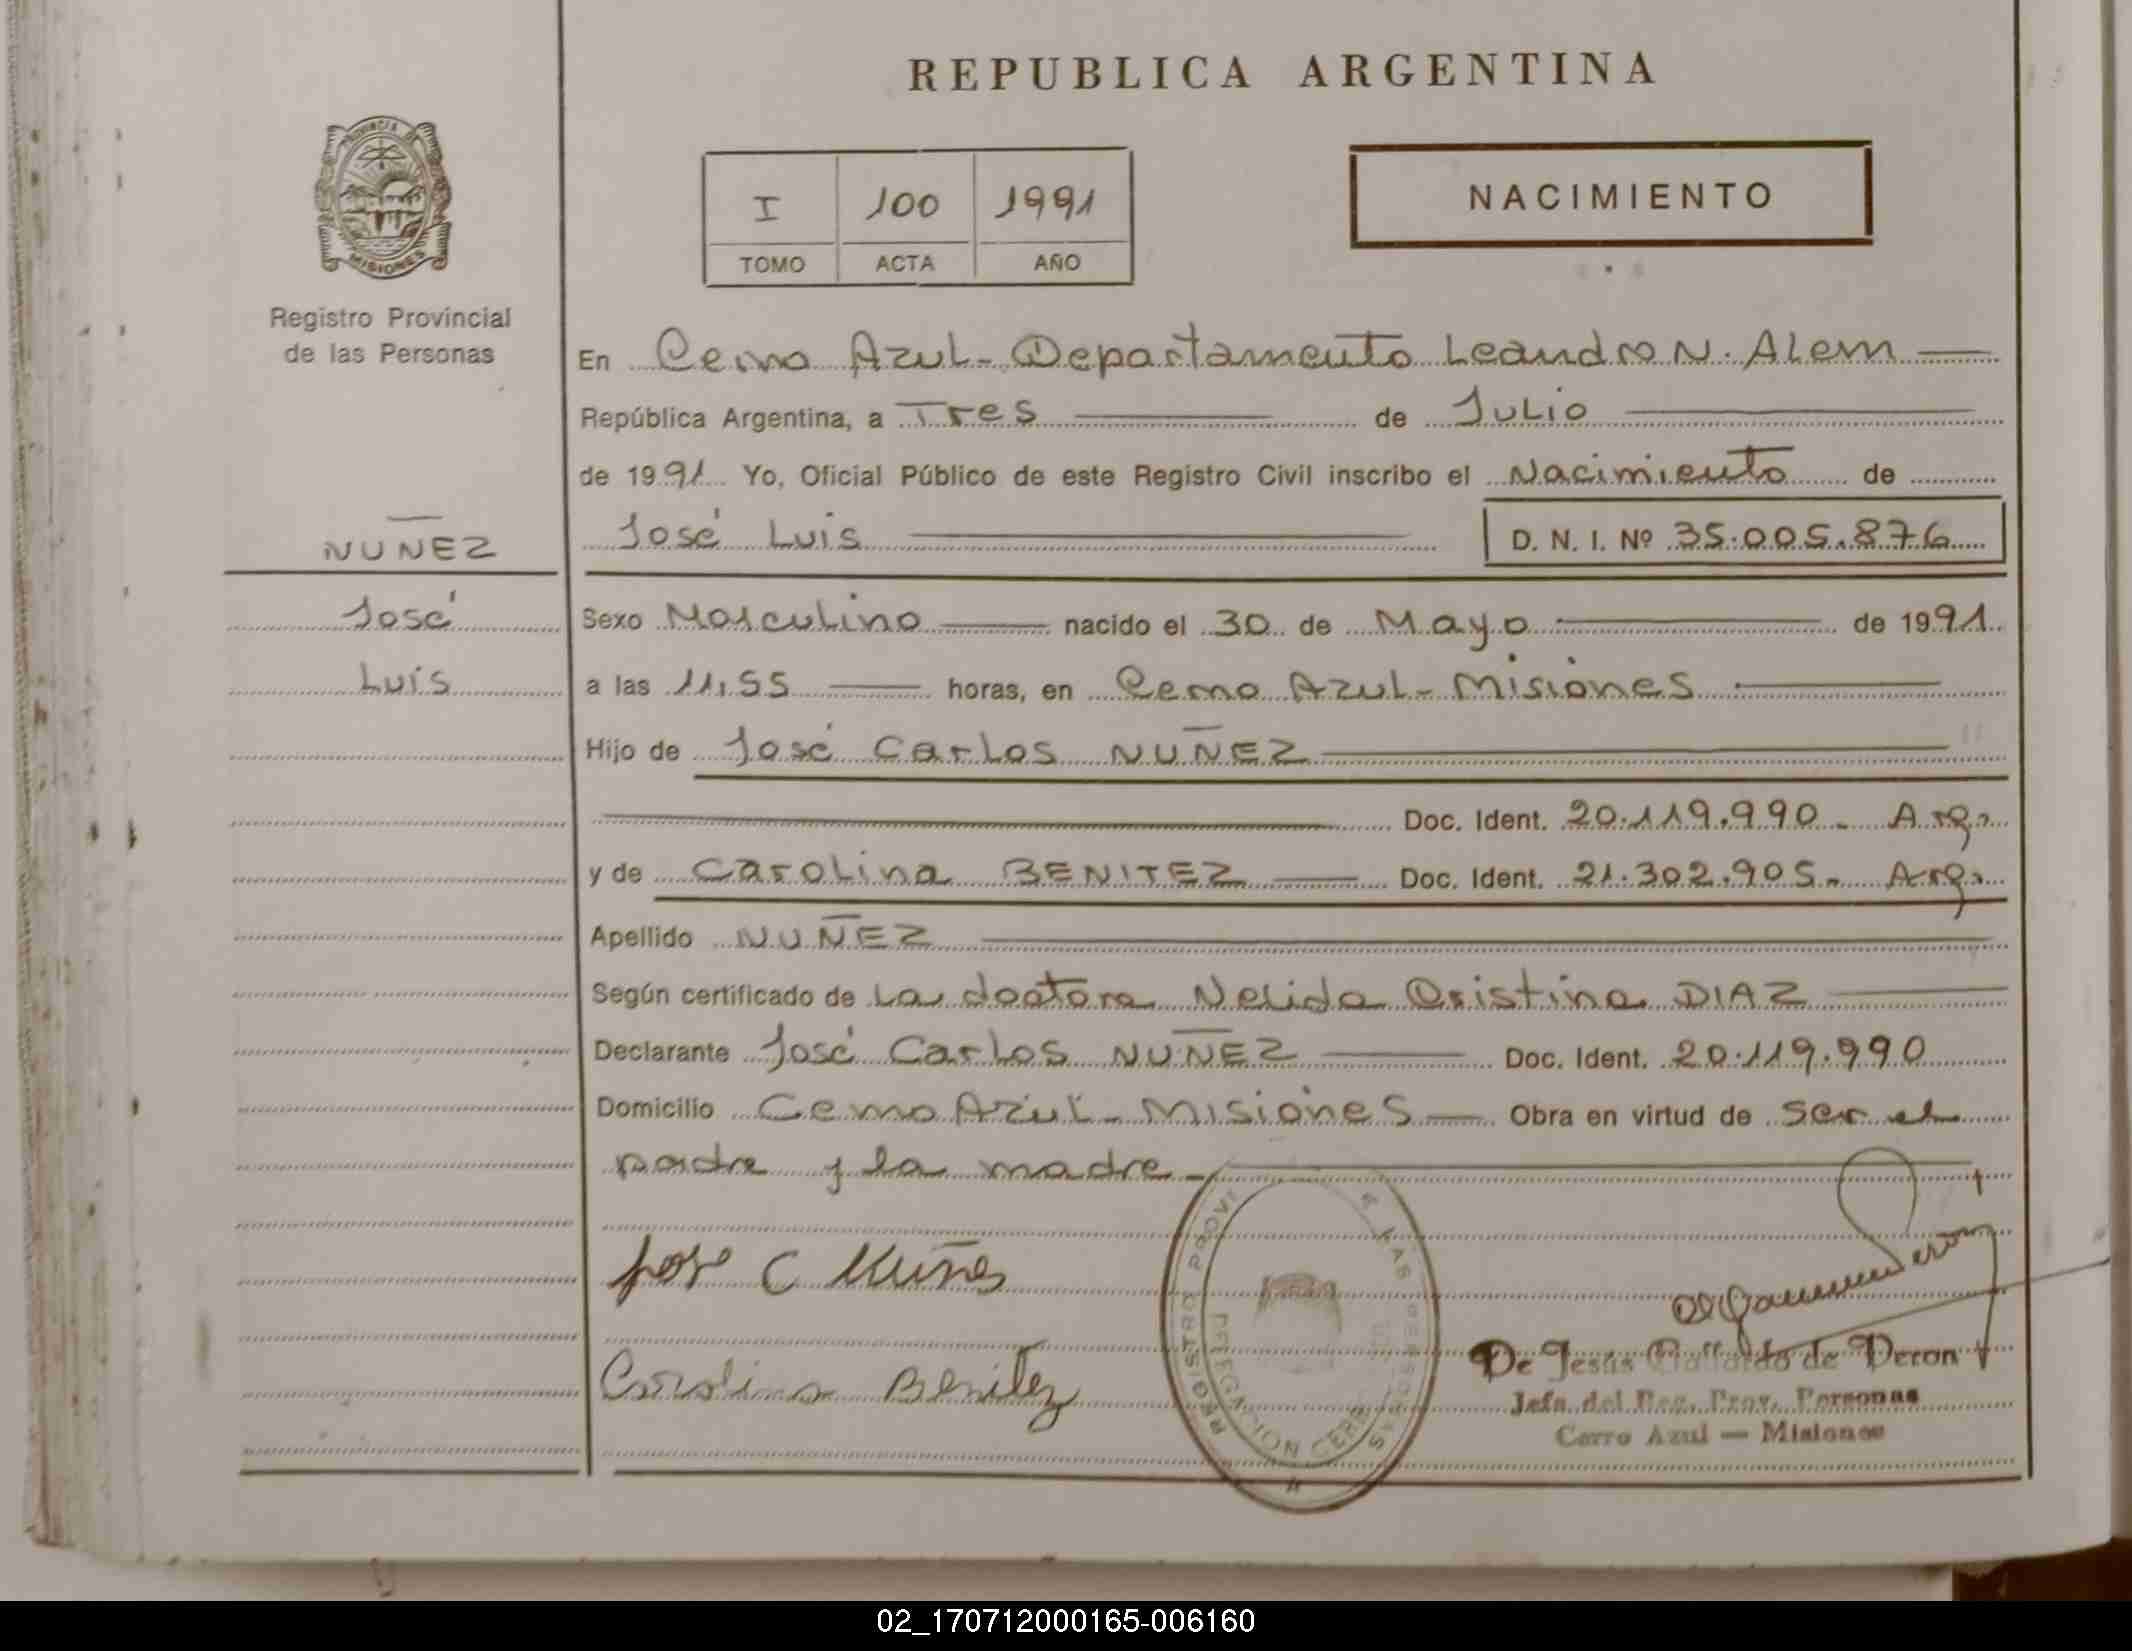 REPUBLICA ARGENTINA
PROVINCIA DE
MISIONES
Registro Provincial
de las Personas
I 100 1991
TOMO ACTA AÑO
NACIMIENTO
En Cerro Azul - Departamento Leandro N. Alem
República Argentina, a Tres de Julio
de 1991 Yo, Oficial Público de este Registro Civil inscribo el Nacimiento de
José Luis D. N. I. Nº 35.005.876
NUÑEZ
José
Luis
Sexo Masculino nacido el 30 de Mayo de 1991
a las 11,55 horas, en Cerro Azul - Misiones
Hijo de José Carlos NUÑEZ
Doc. Ident. 20.119.990 - Arg.
y de Carolina BENITEZ Doc. Ident. 21.302.905 - Arg.
Apellido NUÑEZ
Según certificado de La doctora Nelida Cristina DIAZ
Declarante José Carlos NUÑEZ Doc. Ident. 20.119.990
Domicilio Cerro Azul - Misiones Obra en virtud de ser el
padre y la madre -
Jose C Nuñes
Carolina Benitez
REGISTRO PROVI LAS PERSONAS
DELEGACION CERR
De Jesús Gallardo de Deron
Jefa del Reg. Prov. Personas
Cerro Azul — Misiones
02_170712000165-006160